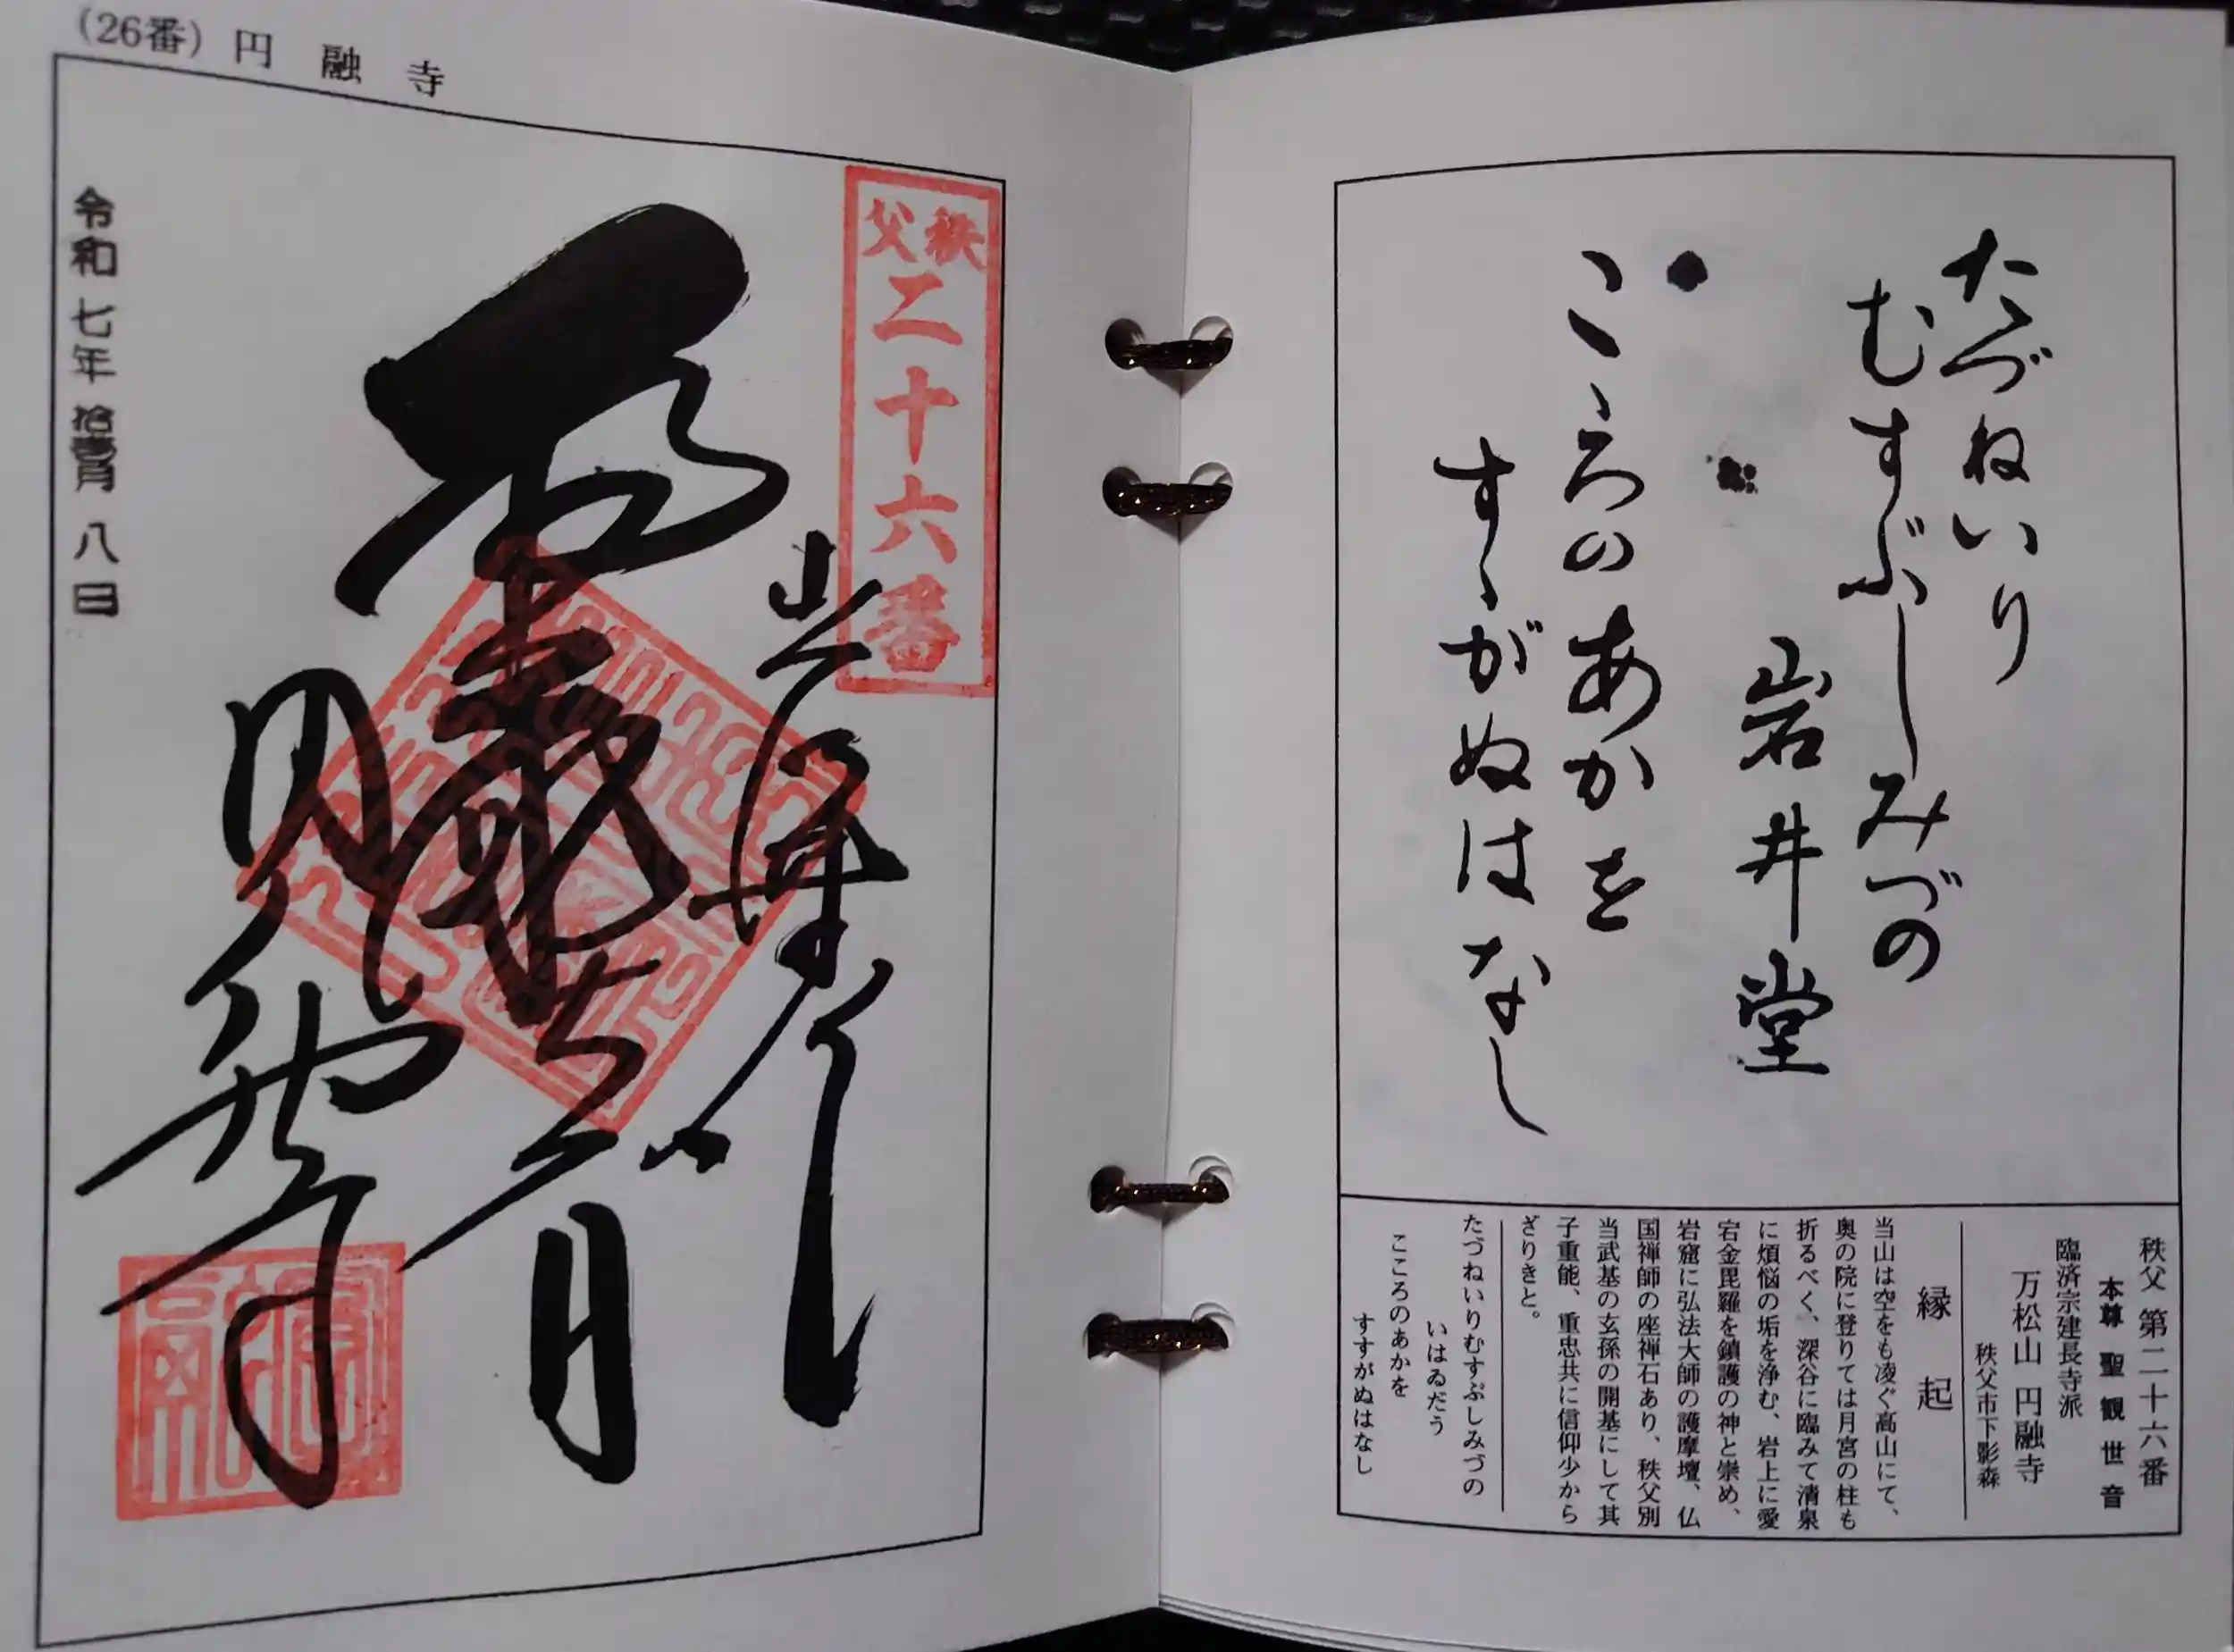 たづねいり
むすぶしみづの
岩井堂
こゝろのあかを
すゝがぬはなし
秩父 第二十六番
本尊 聖観世音
臨済宗建長寺派
万松山 円融寺
秩父市下影森
縁起
当山は空をも凌ぐ高山にて、
奥の院に登りては月宮の柱も
折るべく、深谷に臨みて清泉
に煩悩の垢を浄む、岩上に愛
宕金毘羅を鎮護の神と崇め、
岩窟に弘法大師の護摩壇、仏
国禅師の座禅石あり、秩父別
当武基の玄孫の開基にして其
子重能、重忠共に信仰少から
ざりきと。
たづねいりむすぶしみづの
いはゐだう
こころのあかを
すすがぬはなし
(26番) 円融寺
秩父二十六番
令和七年拾壹月八日